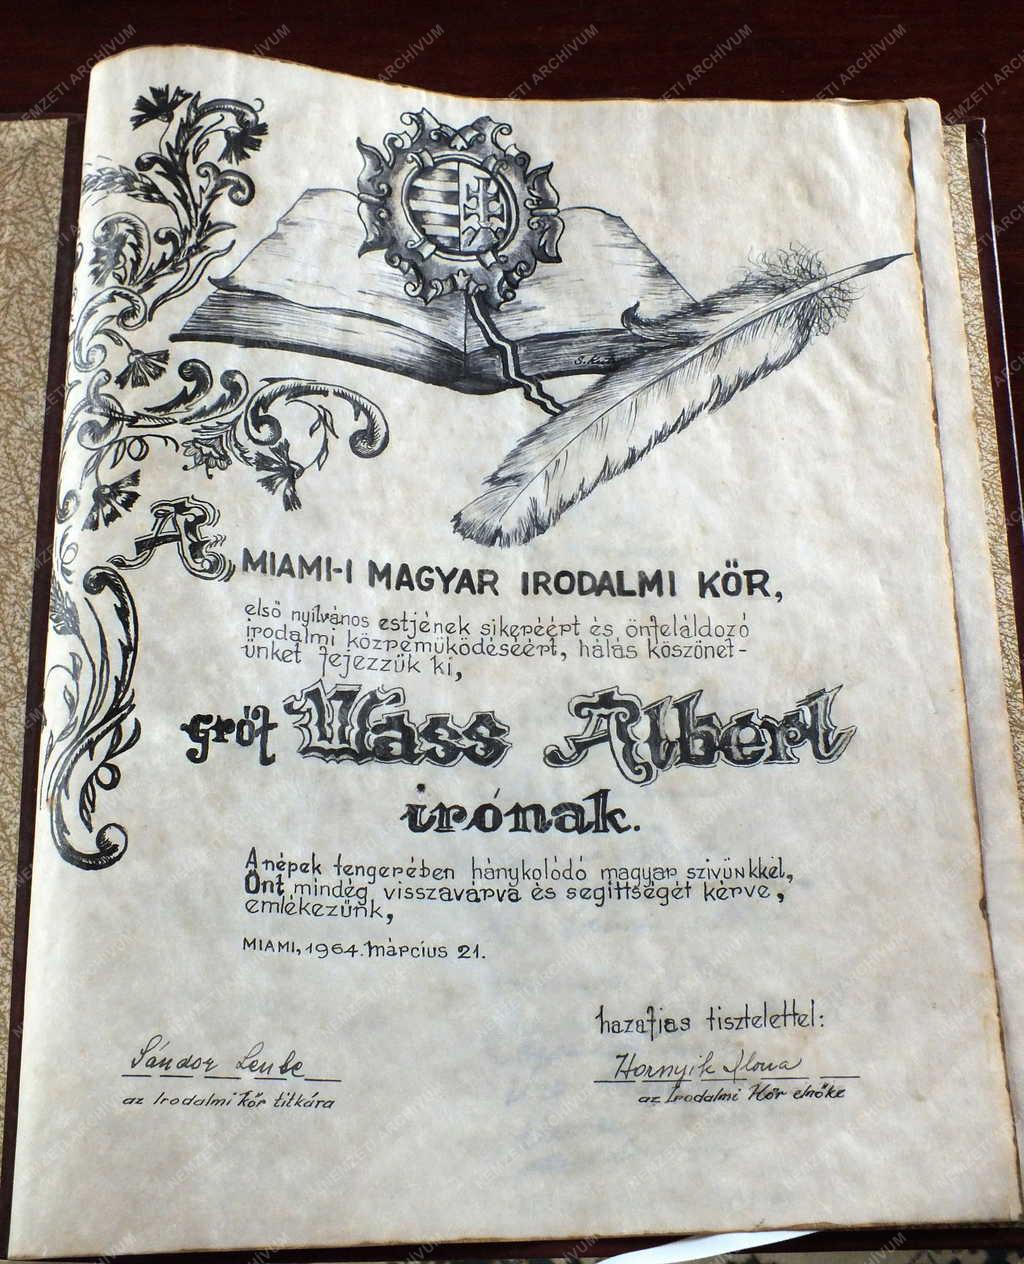 A MIAMI-I MAGYAR IRODALMI KÖR,
első nyilvános estjének sikeréért és önfeláldozó
irodalmi közreműködéséért, hálás köszönet-
ünket fejezzük ki,
gróf Wass Albert
írónak.
A népek tengerében hánykolódó magyar szivünkkel,
Önt mindég visszavárva és segíttségét kérve,
emlékezünk,
MIAMI, 1964. március 21.
hazafias tisztelettel:
Sándor Lenke
Hornyik Ilona
az Irodalmi Kör titkára
az Irodalmi Kör elnöke
NEMZETI ARCHÍVUM